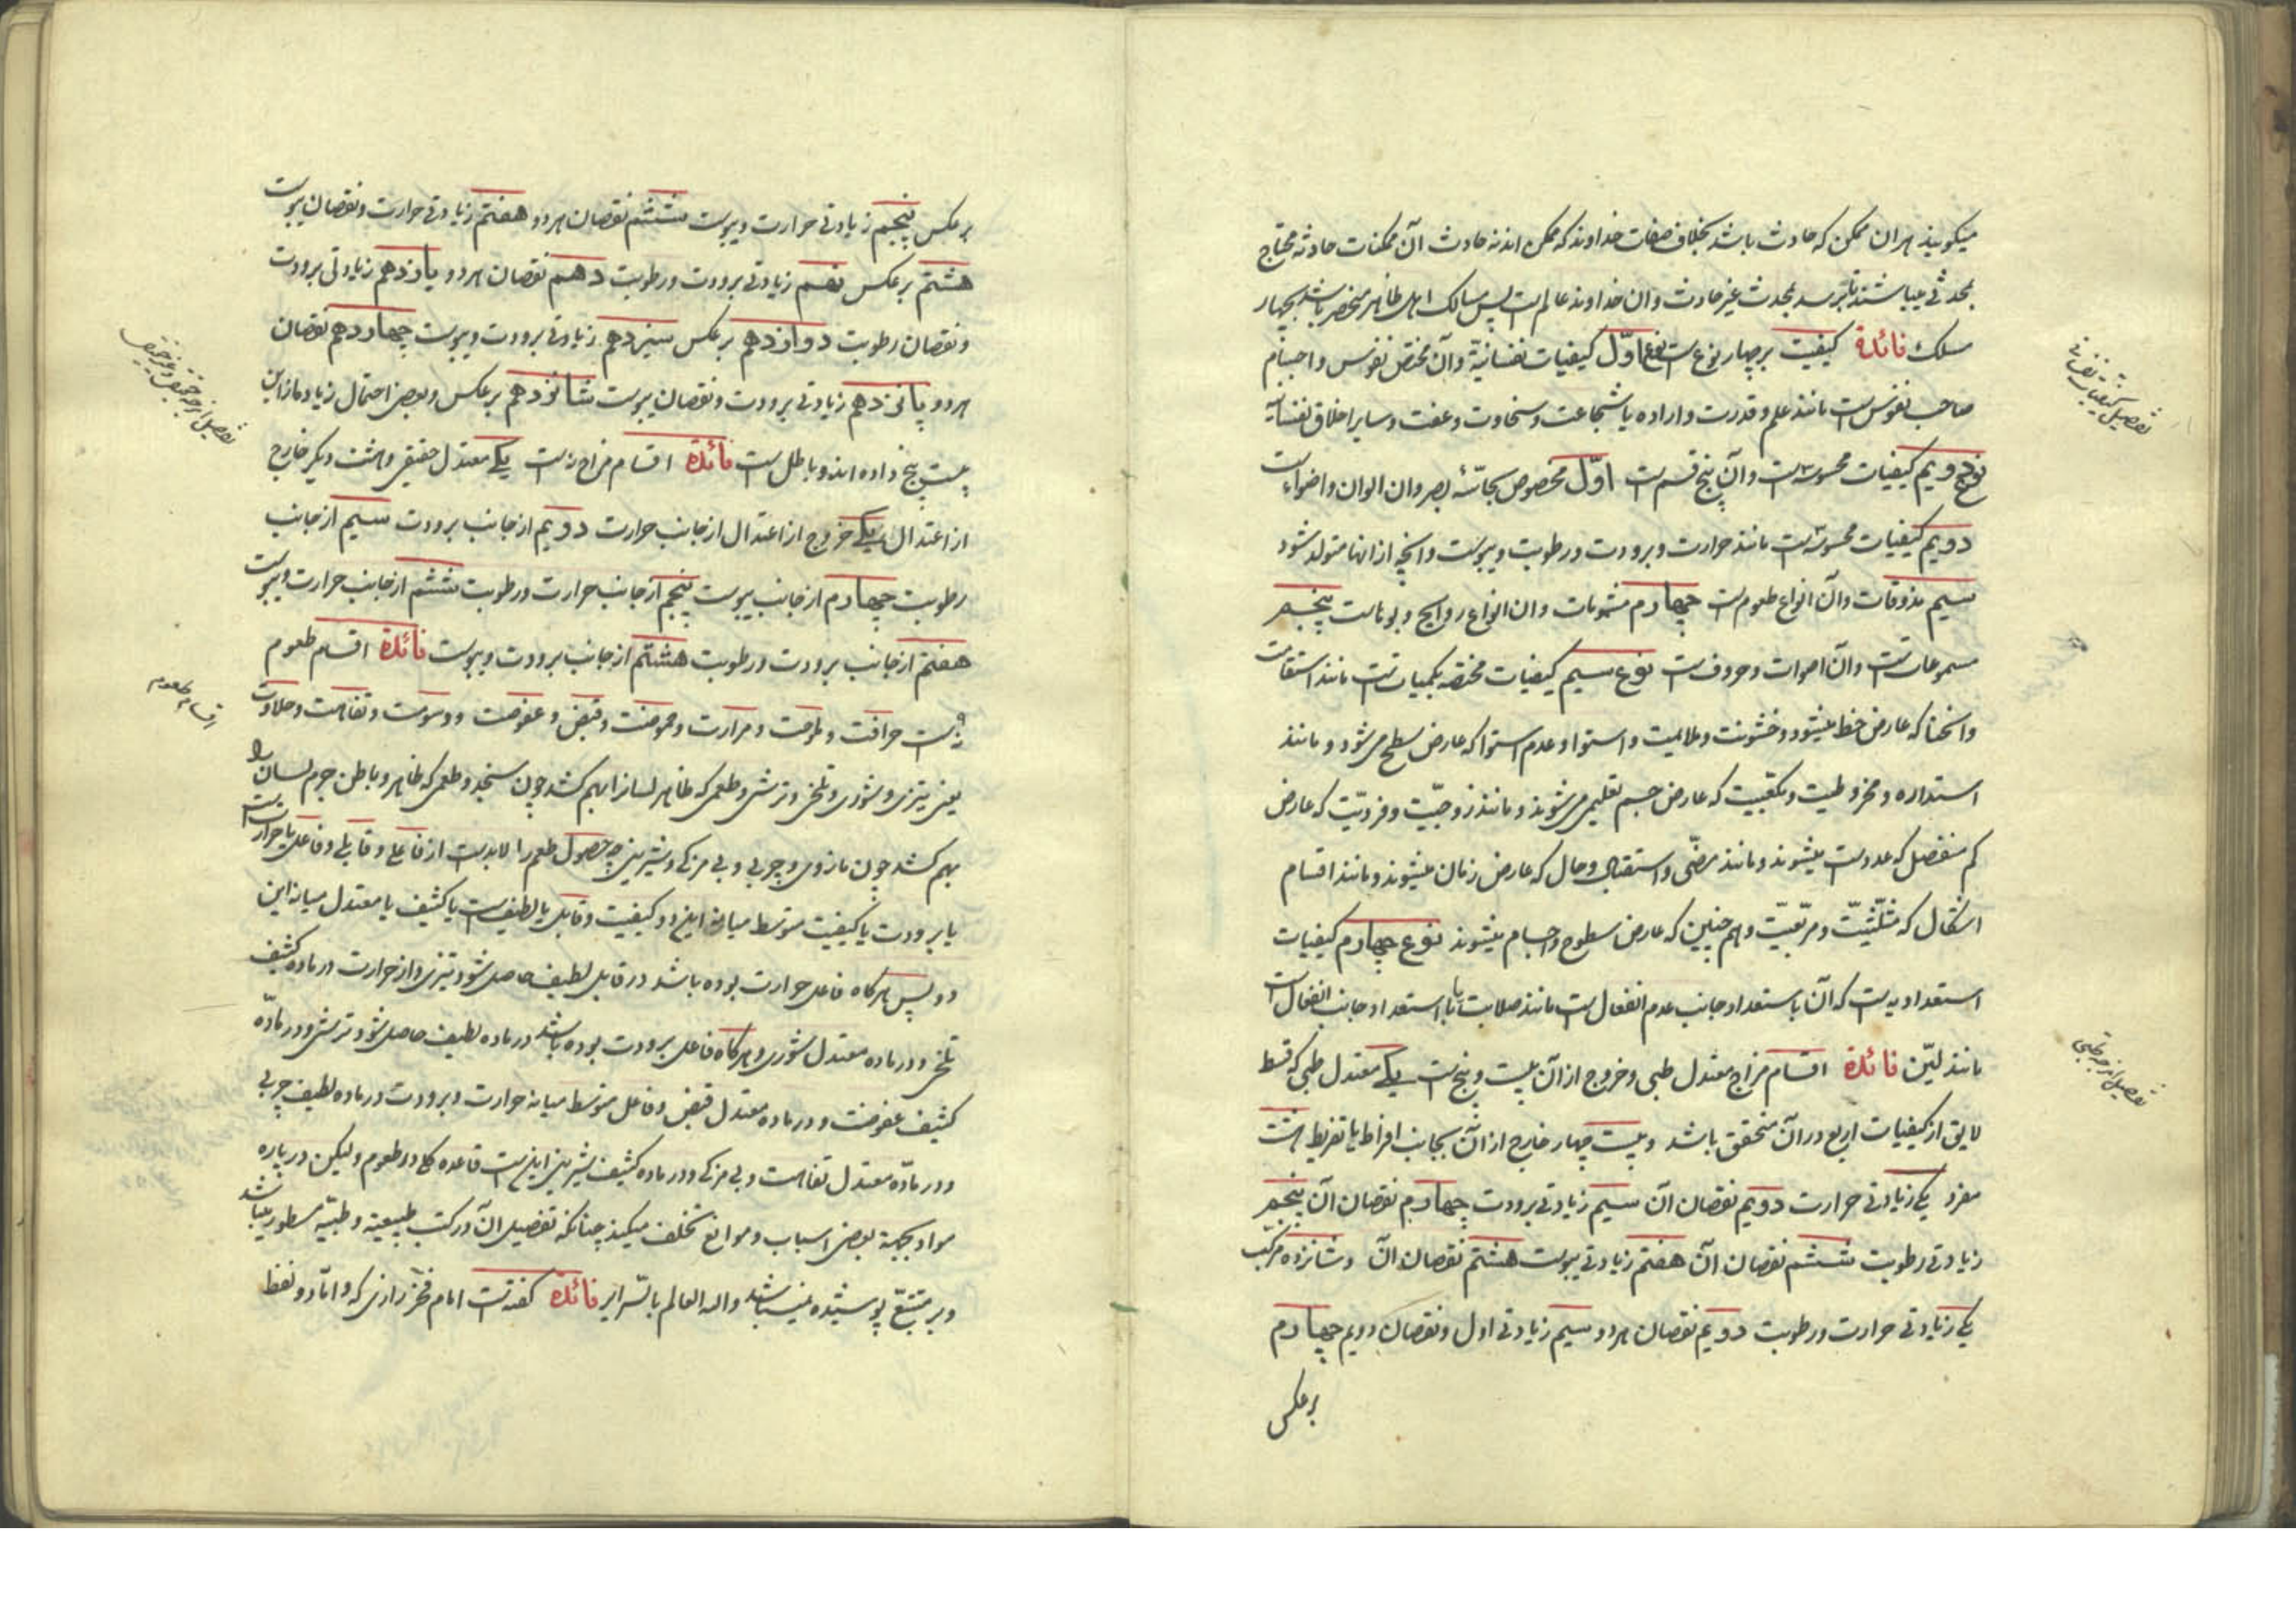 میکویند هر ان ممکن که حادث باشد بخلاف صفات خداوند که ممکن اند نه حادث آن ممکنات حادثه محتاج
بمحدثی میباشند تا برسد بمحدث غیر حادث و ان خداوند عالم است پس مسالک اهل ظاهر منحصر باشد بچهار
مسلک فائدة کیفیت بر چهار نوع است نوع اوّل کیفیات نفسانیّة وآن مختص نفوس و اجسام
صاحب نفوس است مانند علم و قدرت و اراده یا شجاعت و سخاوت و عفت و سایر اخلاق نفسانیّه
نوع دویم کیفیات محسوسه است وآن پنج قسم است اوّل مخصوص بحاسّهٔ بصر و ان الوان و اضواء است
دویم کیفیات محسوسه است مانند حرارت و برودت و رطوبت و یبوست و انچه از انها متولد شود
سیم مذوقات وآن انواع طعوم است چهاردم مشمومات و ان انواع روایح و بوهاست پنجم
مسموعات است وآن اصوات و حروف است نوع سیم کیفیات مختصّه بکمیات است مانند استقامت
و انحنا که عارض خط میشود و خشونت و ملایمت و استوا و عدم استوا که عارض سطح می شود و مانند
استداره و مخروطیت و مکعبیت که عارض جسم تعلیمی می شوند و مانند زوجیّت و فردیّت که عارض
کم منفصل که عدد است میشوند و مانند مضّی و استقبال و حال که عارض زمان میشوند و مانند اقسام
اشکال که مثلّثیّت و مربّعیّت و هم چنین که عارض سطوح و اجسام میشوند نوع چهاردم کیفیات
استعدادیه است که آن یا استعداد جانب عدم انفعال است مانند صلابت یا استعداد جانب انفعال است
مانند لیّن فائدة اقسام مزاج معتدل طبی و خروج از آن بیست و پنج است یکے معتدل طبی که قسط
لایق از کیفیات اربع در آن متحقق باشد و بیست چهار خارج از آن بجانب افراط یا تفریط هشت
مفرد یکے زیادتی حرارت دویم نقصان آن سیم زیادتی برودت چهاردم نقصان آن پنجم
زیادتی رطوبت ششم نقصان آن هفتم زیادتی یبوست هشتم نقصان آن و شانزده مرکب
یکے زیادتی حرارت و رطوبت دویم نقصان هر دو سیم زیادتی اول و نقصان دویم چهاردم
بر عکس
تفصیل کیفیات نفسانی
تفصیل مزاج طبی
بر عکس پنجم زیادتی حرارت و یبوست ششم نقصان هر دو هفتم زیادتی حرارت و نقصان یبوست
هشتم بر عکس نهم زیادتی برودت و رطوبت دهم نقصان هر دو یازدهم زیادتی برودت
و نقصان رطوبت دوازدهم بر عکس سیزدهم زیادتی برودت و یبوست چهاردهم نقصان
هر دو پانزدهم زیادتی برودت و نقصان یبوست شانزدهم بر عکس و بعضی احتمال زیاده از این
بیست پنج داده اند و باطل است فائدة اقسام مزاج نه است یکے معتدل حقیقی و هشت دیکر خارج
از اعتدال یکے خروج از اعتدال از جانب حرارت دویم از جانب برودت سیم از جانب
رطوبت چهاردم از جانب یبوست پنجم از جانب حرارت و رطوبت ششم از جانب حرارت و یبوست
هفتم از جانب برودت و رطوبت هشتم از جانب برودت و یبوست فائدة اقسام طعوم
نه است حرافت و ملوحت و مرارت و حموضت و قبض و عفوصت و دسومت و تفاهت و حلاوت
یعنی تیزی و شوری و تلخی و ترشی و طعمی که ظاهر لسانرا بهم کشد چون سنجد و طعمی که ظاهر و باطن جرم لسان را
بهم کشد چون مازوی و چربی و بی مزکے و شیرینی چه حصول طعم را لابد است از فاعلے و قابلے و فاعل یا حرارت است
یا برودت یا کیفیت متوسط میانه این دو کیفیت و قابل یا لطیف است یا کثیف یا معتدل میانه این
دو پس هر کاه فاعل حرارت بوده باشد در قابل لطیف حاصل شود تیزی و از حرارت در ماده کثیف
تلخی و در ماده معتدل شوری و هر کاه فاعل برودت بوده باشد در ماده لطیف حاصل شود ترشی و در مادّه
کثیف عفوصت و در ماده معتدل قبض و فاعل متوسط میانه حرارت و برودت در ماده لطیف چربی
و در مادّه معتدل تفاهت و بی مزکے و در ماده کثیف شیرینی این است قاعده کلے در طعوم و لیکن در پاره
مواد بجهة بعضی اسباب و موانع تخلف میکند چنانکه تفضیل آن در کتب طبیعیّه و طبیّه مسطور میباشد
و بر متتبّع پوشیده نمیباشد و الله العالم بالسّرایر فائدة کفته است امام فخر رازی که و امّا دو لفظ
تفصیل مزاج حقیقی و غیر حقیقی
اقسام طعوم